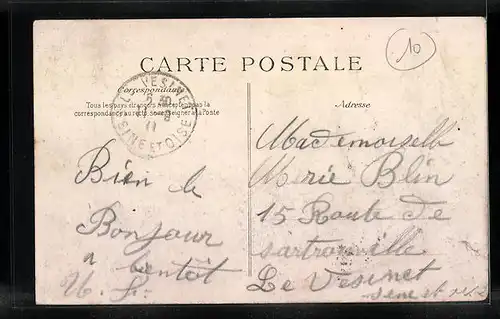 10
CARTE POSTALE
Correspondance
Tous les pays étrangers n'acceptent pas la
correspondance au recto, se renseigner à la Poste
Adresse
LE VESINET
SEINE ET OISE
Bien le
Bonjour
a bentôt
Mademoiselle
Marie Blin
15 Route de
sartrouville
Le Vesinet